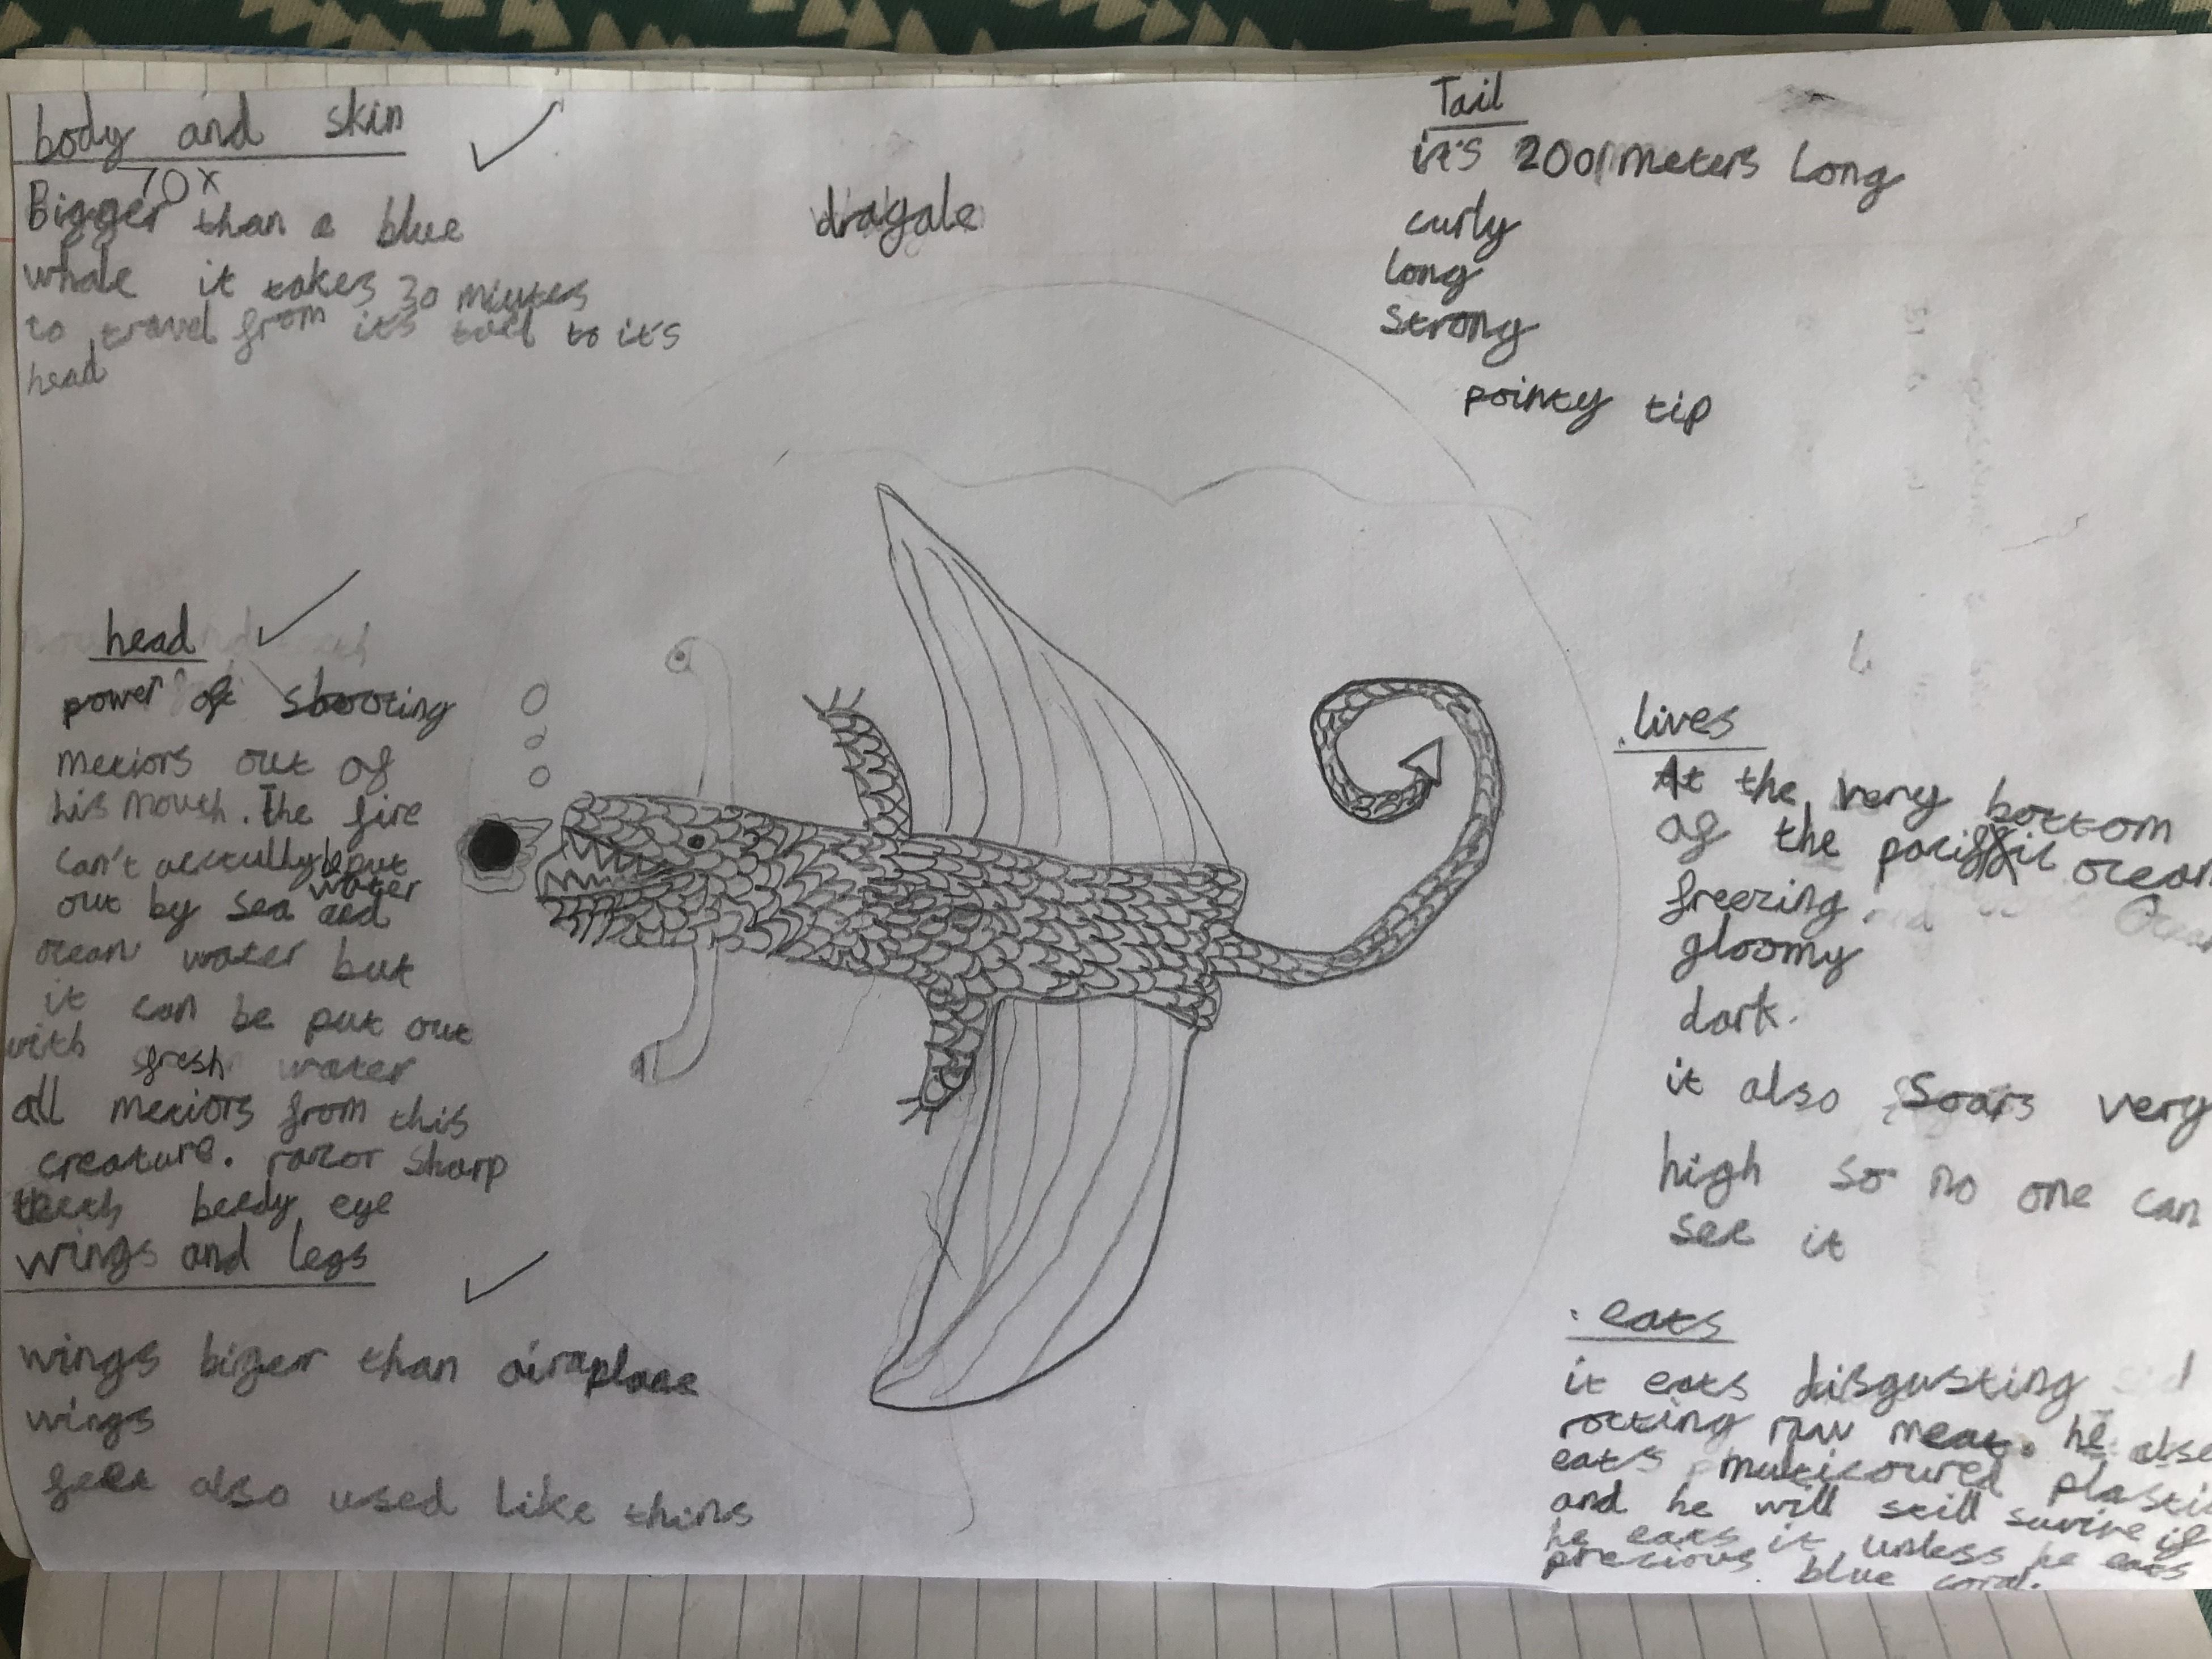 body and skin
70x
Bigger than a blue
whale it takes 30 miuutes
to travel from it's tail to it's
head
dragale
Tail
it's 200 meters long
curly
long
strong
pointy tip
head
power of shooting
metiors out of
his mouth. The fire
can't acctully be put
out by sea water
ocean water but
it can be put out
with fresh water
all metiors from this
creature. razor sharp
teeth beedy eye
wings and legs
wings biger than airaplane
wings
feet also used like thins
lives
At the very bottom
of the pacific ocean
freezing
gloomy
dark.
it also soars very
high so no one can
see it
eats
it eats disgusting
rotting raw meat. he also
eats multicoured plastic
and he will still survire if
he eats it unless he eats
precious blue coral.